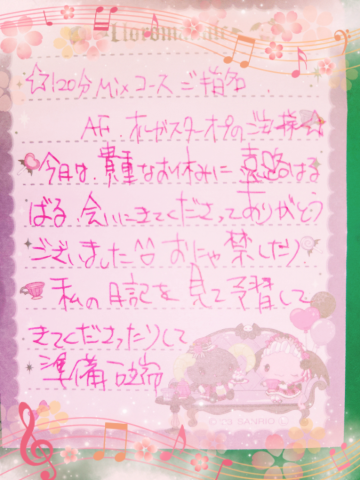 Lloromannic
☆120分Mixコースご指名
AF.オーガスターオプのお客様☆
今日は、貴重なお休みに遠路はる
ばる、会いにきてくださってありがとう
ございました おにゃ禁したり
私の日記を見て予習して
きてくださったりして
準備万端
SANRIO